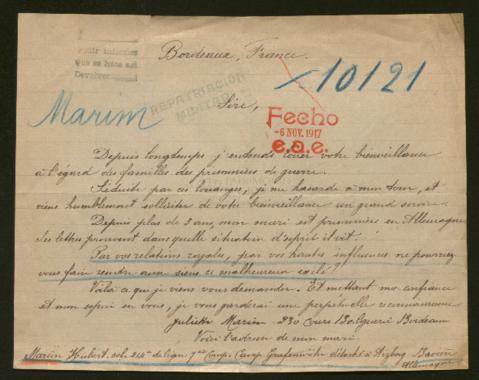 Pedir informes
que se hace así
Devolver
Bordeaux, France.
10121
REPATRIACION
MILITAR
Marim
Sire,
Fecho
-6 NOV. 1917
e.a.e.
Depuis longtemps j'entends louer votre bienveillance
à l'égard des familles des prisonniers de guerre.
Séduite par ces louanges, je me hasarde à mon tour, et
viens humblement solliciter de votre bienveillance un grand service.
Depuis plus de 3 ans, mon mari est prisonnier en Allemagne
Ses lettres prouvent dans quelle situation d'esprit il vit!
Par vos relations royales, par vos hautes influences ne pourriez
vous faire rendre aux siens ce malheureux exilé?
Voilà ce que je viens vous demander. Et mettant ma confiance
et mon espoir en vous, je vous garderai une perpétuelle reconnaissance
Juliette Marim 230 Cours Balguerie Bordeaux
Voici l'adresse de mon mari
Marim Hubert, sol. 2 de ligne 7e Comp. Camp. Grafenwöhr détaché à Arzberg Bavière
Allemagne